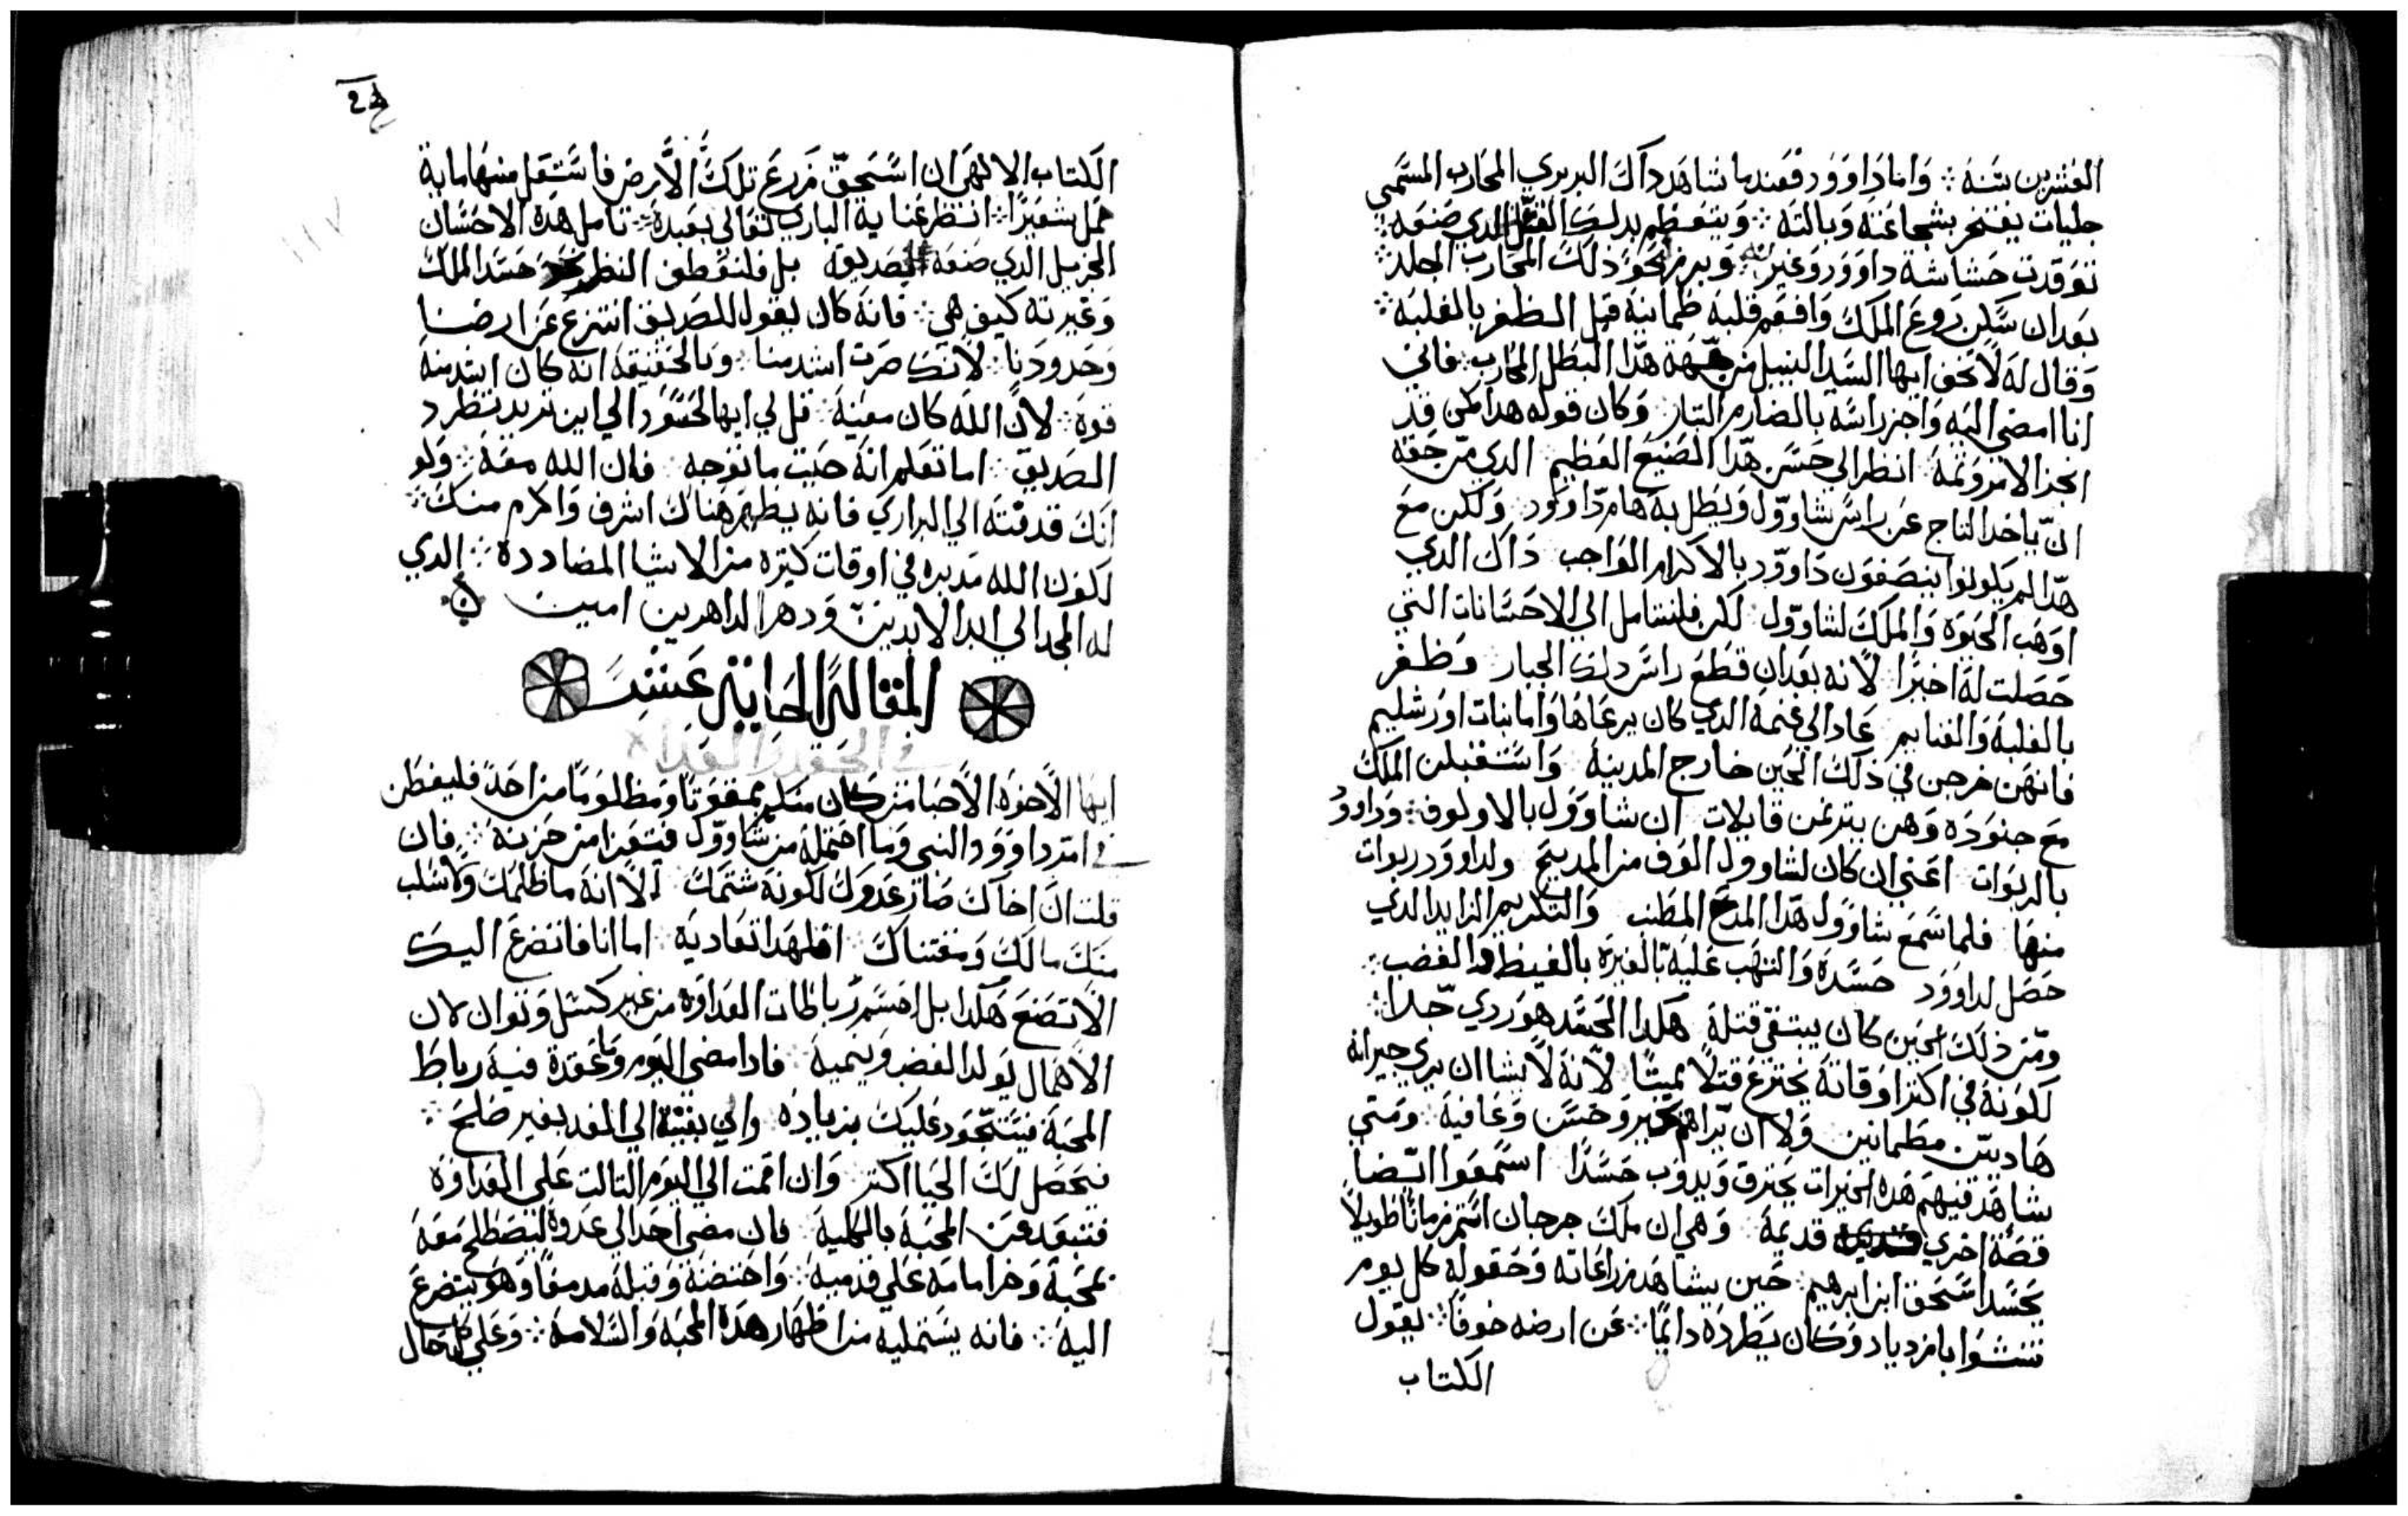 العشرين سنة ۞ وَاما دَاوَوُد فعند ما شاهد داك البربري المحارب المسَمى
جليات يفتخر بشجاعته وَبالته ۞ وَيتعظم بدلك القتل الدي صَنعه ۞
توقدت حَشاشة داوَوُد وَغيرته ۞ وَبرز نحوَ ذلك المحَارب الجلد ۞
بعد ان سَكن رَوعَ الملك وَافعم قلبه طمانية قبل الظفر بالغلبه ۞
وَقال له لا تخف ايها السَيد النبيل من جهة هذا البطل المحارب ۞ فاني
انا امضي اليه وَاجز راسَه بالصارم البتار ۞ وَكان قوله هدا كمن قد
انجز الامر وَتمه ۞ انظر الي حَسَن هَذا الصَنيعَ العَظيم الدي من حَقه
ان ياخد التاج عَن راسَ شاوَوُل وَيظل به هَامة داوَوُد ۞ وَلكن معَ
هَذا لم يكونوا ينصَفون دَاوَوُد بالاكرام الوَاجب داك الدي
اوَهَب الحَيوَة وَالملك لشاوَوُل ۞ لكن فلنتامل الي الاحسَانات التي
حَصَلت له اخيرًا ۞ لانه بعد ان قطعَ راسَ دلك الجبار وَظفر
بالغلبة وَالغنايم عَاد الي غنمه الدي كان يرعَاهَا وَاما بنات اوَرشليم
فانهَن خرجن في ذلك الحَين خارج المدينة وَاسَتقبلن الملك
معَ جنودَه وَهن يترنمن قايلات ان شاوَوُل بالالوف ۞ وَداوُود
بالربوَات اعَني ان كان لشاوَوُل الوَف من المديح ولداوَوُد ربوات
منهَا فلما سَمعَ شاوَوُل هَذا المدحَ المطنب وَالتكريم الزايد الدي
حَصَل لداوَوُد حَسَدَه وَالتهَب عَليه بالغيرَة بالغيظ وَالغضب ۞
وَمن ذلك الحَين كان يبتغي قتله هَكدا الحَسَد هوَ ردي جدا ۞
لكوَنه في اكثر اوَقاته يخترعَ قتلًا مميتًا لانه لا يشا ان يري جيرانه
هَاديين مطمانين وَلا ان يراهَم بخير وَحَسَن وَعَافية ۞ وَمتي
شاهَد فيهَم هَده الخيرات يحَترق وَيدوَب حَسَدًا اسَتمعَوا ايضا
قصَة اخري قديمة ۞ وَهي ان ملك جرجان استمر زمانًا طويلًا
يحَسَد اسَحَق ابن ابرهيم ۞ حَين يشاهَد زراعَاته وَحَقوله كل يوم
تنشوَا بازدياد وَكان يَطردَه دايمًا ۞ عَن ارضه خوفًا ۞ يقول
الكتاب
الكتاب الالهَي ان اسَحَق زرعَ تلك الارض فاستغل منهَا ماية
حَمل شعَيرًا ۞ انظر عَناية الباري تعَالي بعَبده ۞ تامل هَده الاحسَان
الجزيل الدي صَنعَه لصَديقه بل فلنعَطف النظر نحو حَسَد الملك
وَغيرته كيف هَي ۞ فانه كان يقول للصَديق انتزع عَن ارضنا
وَحَدودَنا ۞ لانك صَرت اشد منا ۞ وَبالحَقيقة انه كان اشد منه
قوة ۞ لان الله كان معَينه ۞ قل لي ايهَا الحَسُوَد الي اين تريد تطرد
الصَديق ۞ اما تعَلم انه حَيث ما توَجه فان الله معَه ۞ وَلو
انك قد نفيته الي البراري فانه يظهَر هَناك اشرف وَاكرم منك ۞
لكوَن الله مدبره في اوَقات كثيره من الاشيا المضادده ۞ الدي
له المجد الي ابد الابدين وَدهر الداهرين امين
المقالة الحَادية عَشَر
في الحَقد وَالعَداوه
ايهَا الاخوَه الاحَبا من كان منكم ممقوَتًا وَمظلوَمًا من احَد فليفطن
في امر داوَوُد النبي وَما احتمله من شاوَوُل فيتعَزا من حَزنه ۞ فان
قلت ان اخاك صَار عَدوك لكونه شتمك الا انه ما ظلمك وَلا سَلب
منك مالك وَمقتناك ۞ افلهَدا تعَاديه ۞ اما انا فاتضرعَ اليك
الا تصَنعَ هَكدا بل احسَم رُباطات العَداوَه من غير كسَل وَتوان لان
الاهَمال يوَلد الغضب وَينميه ۞ فادا مضي اليوم وَما عَقدة فيه رباط
المحَبة فيتحوَد عَليك بزيادَه واي بقيته الي الغد بغير صَلحَ ۞
فيحَصَل لك الحَيا اكثر وَان اقمت الي اليوَم التالت عَلي العَداوَة
فتبعَد عَن المحَبة بالكلية ۞ فان مضي احَد الي عَدوه ليصَطلح معَه
بمحَبة وَخر امامه عَلي قدميه ۞ وَاحَتضنه وَقبله مدمعَا وَهَو يتضرعَ
اليه ۞ فانه يسَتمليه من اظهَار هَده المحَبه وَالسَلامة ۞ وَعَلي كل حَال